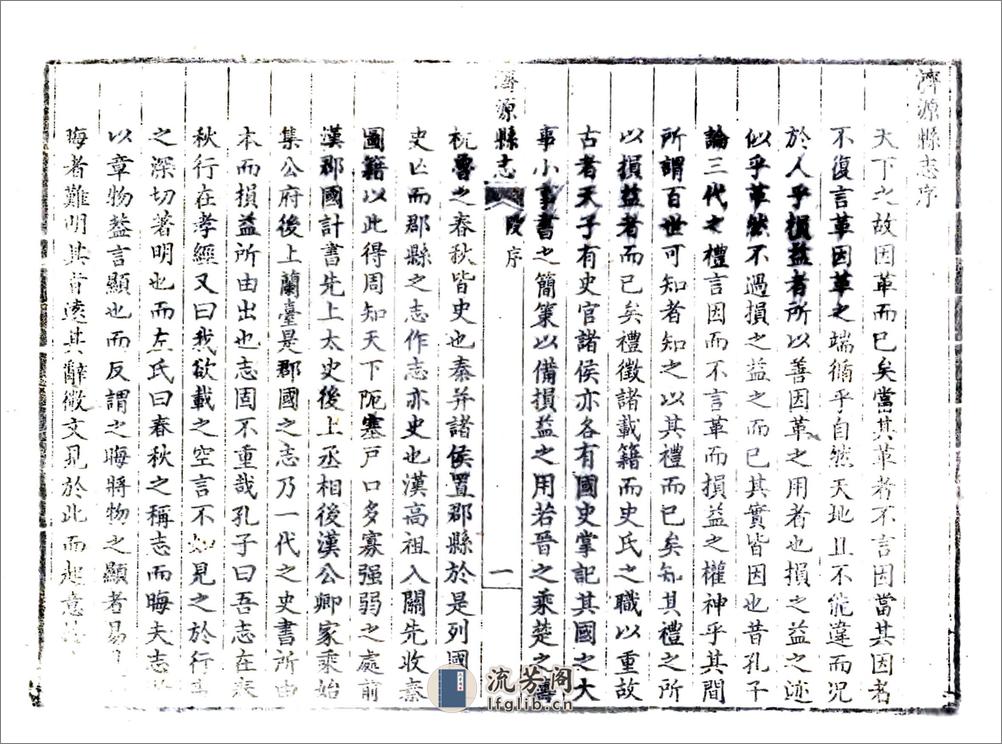 濟源縣志序
天下之故因革而已矣當其革者不言因當其因者
不復言革因革之端循乎自然天地且不能違而况
於人乎損益者所以善因革之用者也損之益之迹
似乎革然不過損之益之而已其實皆因也昔孔子
論三代之禮言因而不言革而損益之權神乎其間
所謂百世可知者知之以其禮而已矣知其禮之所
以損益者而已矣禮徵諸載籍而史氏之職以重故
古者天子有史官諸侯亦各有國史掌記其國之大
事小事書之簡策以備損益之用若晉之乘楚之檮
濟源縣志
序
一
杌魯之春秋皆史也秦并諸侯置郡縣於是列國
史亡而郡縣之志作志亦史也漢高祖入關先收秦
圖籍以此得周知天下阨塞戶口多寡强弱之處前
漢郡國計書先上太史後上丞相後漢公卿家乘始
集公府後上蘭臺是郡國之志乃一代之史書所由
本而損益所由出也志固不重哉孔子曰吾志在春
秋行在孝經又曰我欲載之空言不如見之於行事
之深切著明也而左氏曰春秋之稱志而晦夫志
以章物蓋言顯也而反謂之晦將物之顯者易
晦者難明其旨遠其辭微文見於此而起意
流芳阁
lfglib.cn